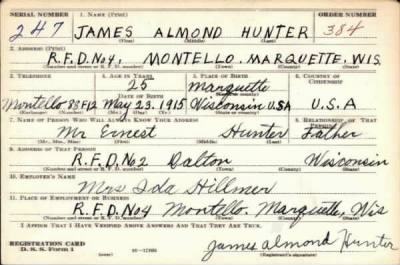 SERIAL NUMBER 1. NAME (Print) ORDER NUMBER
247 JAMES ALMOND HUNTER 384
(First) (Middle) (Last)
2. ADDRESS (Print)
R.F.D. No 4, MONTELLO, MARQUETTE, WIS.
(Number and street or R. F. D. number) (Town) (County) (State)
3. TELEPHONE 4. AGE IN YEARS 5. PLACE OF BIRTH 6. COUNTRY OF CITIZENSHIP
25 Marquette
DATE OF BIRTH (Town or county)
Montello May 23, 1915 Wisconsin U.S.A U.S.A
(Exchange) (Number) (Mo.) (Day) (Yr.) (State or country)
7. NAME OF PERSON WHO WILL ALWAYS KNOW YOUR ADDRESS 8. RELATIONSHIP OF THAT PERSON
Mr Ernest Hunter Father
(Mr., Mrs., Miss) (First) (Middle) (Last)
9. ADDRESS OF THAT PERSON
R.F.D. No 2 Dalton Wisconsin
(Number and street or R. F. D. number) (Town) (County) (State)
10. EMPLOYER'S NAME
Mrs Ida Hillmer
11. PLACE OF EMPLOYMENT OR BUSINESS
R.F.D. No 4 Montello, Marquette, Wis
(Number and street or R. F. D. number) (Town) (County) (State)
I AFFIRM THAT I HAVE VERIFIED ABOVE ANSWERS AND THAT THEY ARE TRUE.
REGISTRATION CARD
D. S. S. Form 1 (over) James Almond Hunter